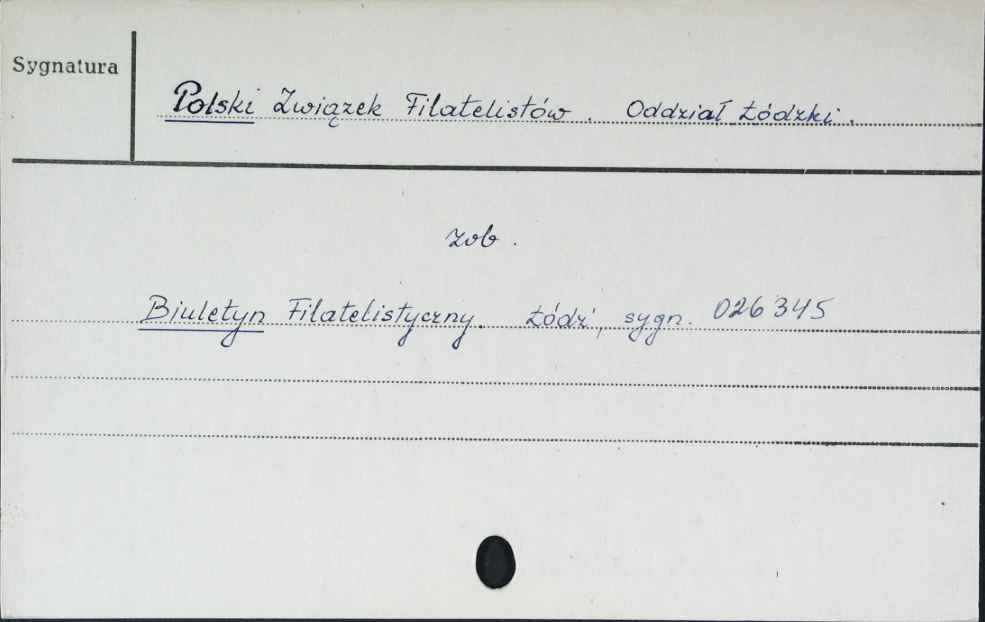 Sygnatura
Polski Związek Filatelistów. Oddział Łódzki.
zob.
Biuletyn Filatelistyczny. Łódź, sygn. 026345